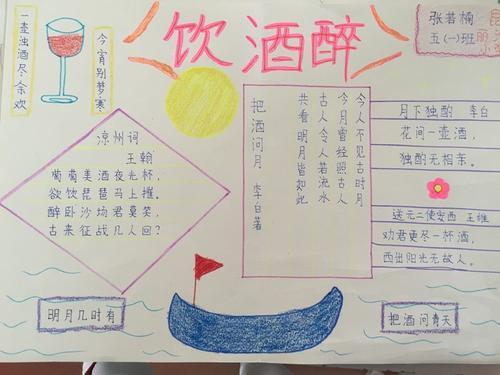 饮酒醉
一壶浊酒尽余欢
今宵别梦寒
张若楠
五(一)班
凉州词
王翰
葡萄美酒夜光杯,
欲饮琵琶马上催,
醉卧沙场君莫笑,
古来征战几人回?
把酒问月 李白著
今人不见古时月
今月曾经照古人
古人今人若流水
共看明月皆如此
月下独酌 李白
花间一壶酒,
独酌无相亲.
送元二使安西 王维
劝君更尽一杯酒,
西出阳光无故人.
明月几时有
把酒问青天